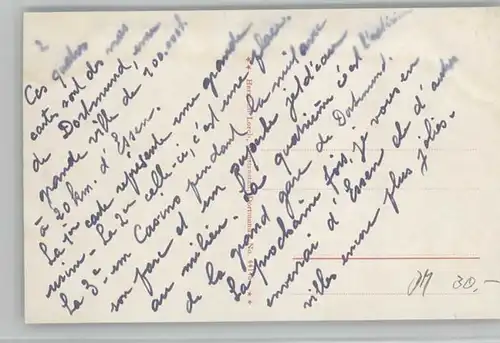 2
Ces quatre
cartes sont des vues
de Dortmund, une
grande ville de 700.000 h.
à 20 km. d'Essen.
La 1re carte représente une grande
usine. La 2e celle-ci, c'est une place.
La 3e un Casino pendant la nuit avec
son parc et un superbe jet d'eau
au milieu. La quatrième c'est l'intérieur
de la grand gare de Dortmund.
La prochaine fois, je vous en
enverrai d'Essen et d'autres
villes encore plus jolies.
30.-